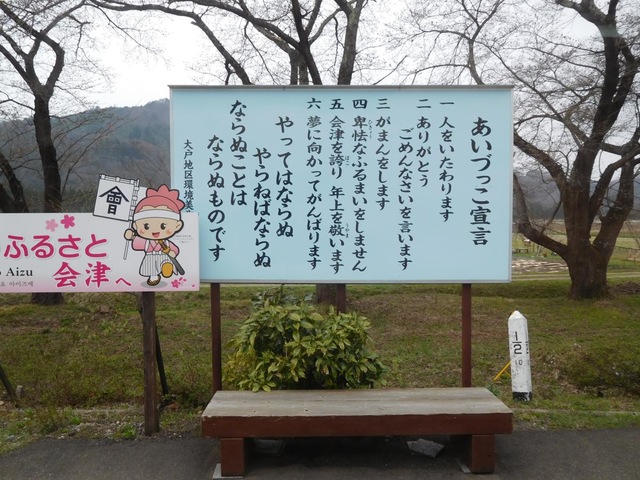 あいづっこ宣言
一 人をいたわります
二 ありがとう
ごめんなさいを言います
三 がまんをします
四 卑怯なふるまいをしません
五 会津を誇り 年上を敬います
六 夢に向かってがんばります
やってはならぬ
やらねばならぬ
ならぬことは
ならぬものです
大戸地区環境美
會
ふるさと
会津へ
Aizu
아이즈에
1
2
10